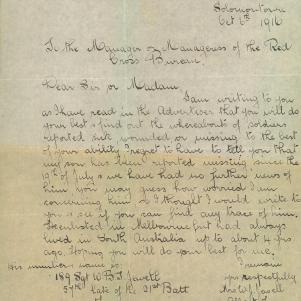 Solomontown
Oct 6th 1916
To the Manager or Manageress of the Red
Cross Bureau,
Dear Sir or Madam,
I am writing to you
as I have read in the Advertiser that you will do
your best & find out the whereabouts of soldiers
reported sick wounded or missing to the best
of your ability I regret to have to tell you that
my son has been reported missing since the
19th of July & we have had no further news of
him you may guess how worried I am
concerning him so I thought I would write to
you & see if you can find any traces of him
He enlisted in Melbourne but had always
lived in South Australia up to about 4 yrs
ago. Hoping you will do your best for me.
His number &
I remain
189 Sgt W B
yrs respectfully
57th late of the 21st Batt